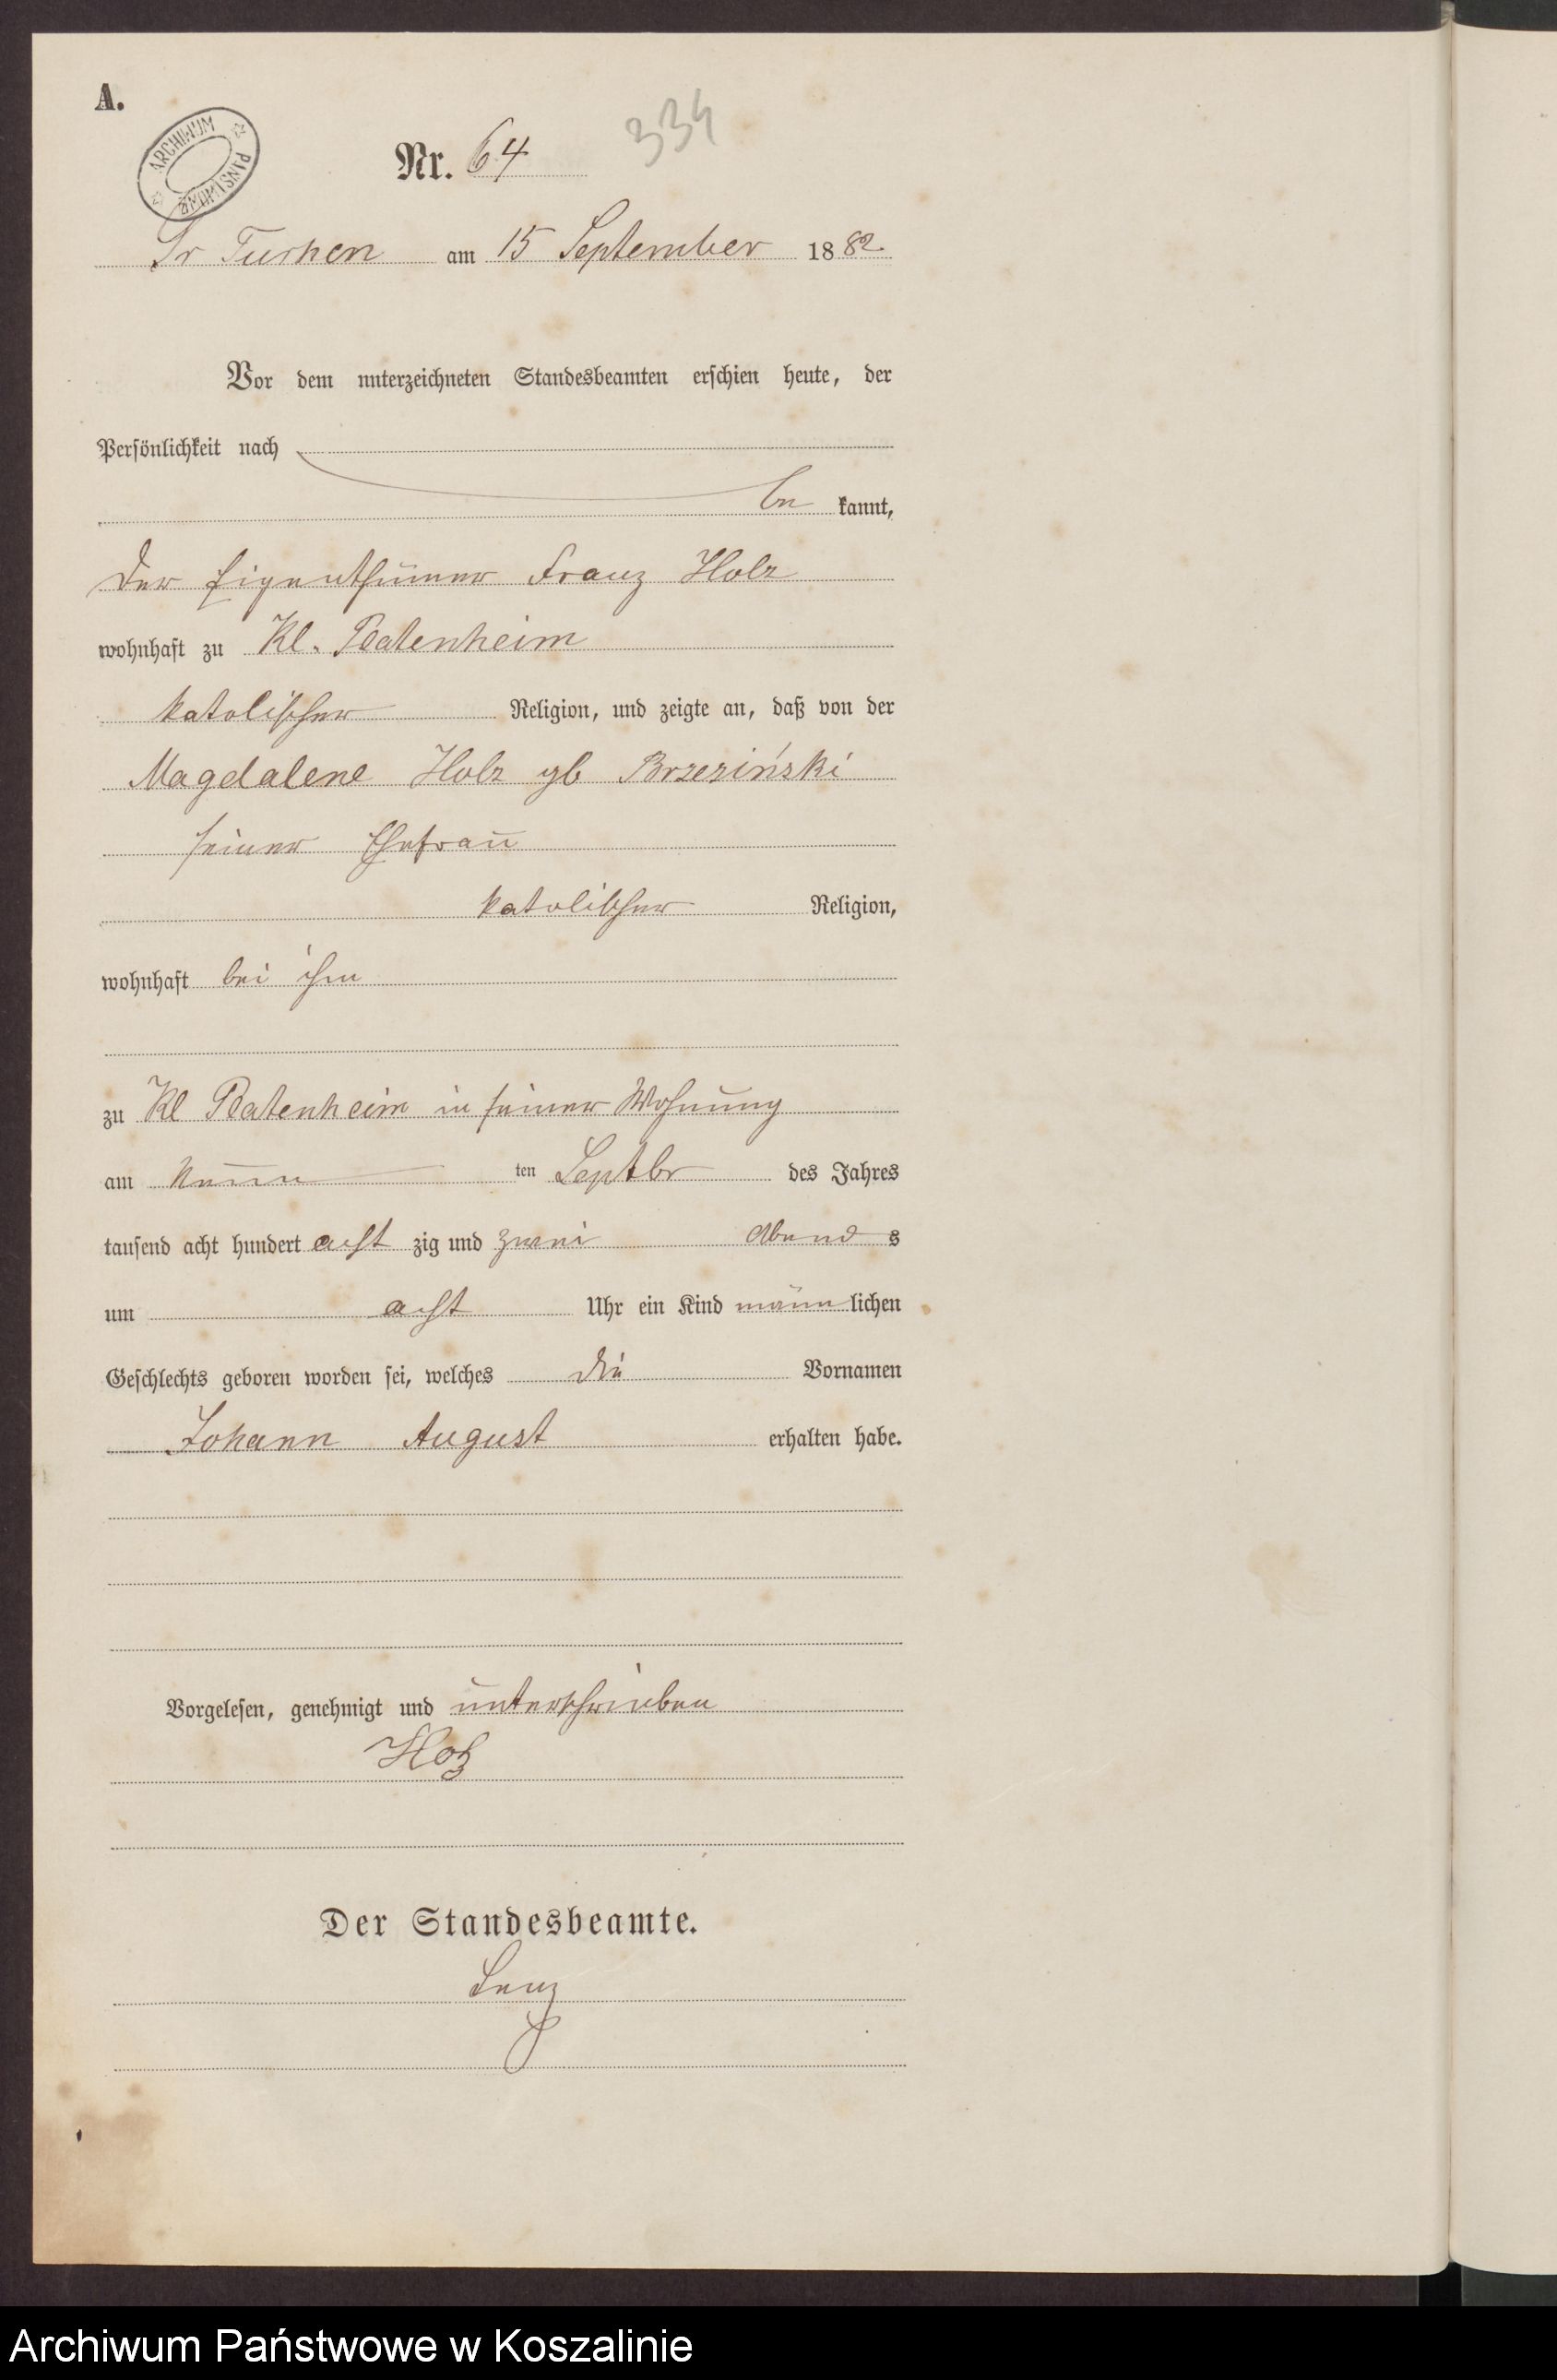 A.
ARCHIWUM PAŃSTWOWE
334
Nr. 64
Gr Tuchen am 15 September 1882.
Vor dem unterzeichneten Standesbeamten erschien heute, der
Persönlichkeit nach
be kannt,
der Eigenthümer Franz Holz
wohnhaft zu Kl. Platenheim
katolischer Religion, und zeigte an, daß von der
Magdalene Holz gb Brzeziński
seiner Ehefrau
katolischer Religion,
wohnhaft bei ihm
zu Kl Platenheim in seiner Wohnung
am neun ten Septbr des Jahres
tausend acht hundert acht zig und zwei Abend s
um acht Uhr ein Kind männlichen
Geschlechts geboren worden sei, welches die Vornamen
Johann August erhalten habe.
Vorgelesen, genehmigt und unterschrieben
Holz
Der Standesbeamte.
Lenz
Archiwum Państwowe w Koszalinie